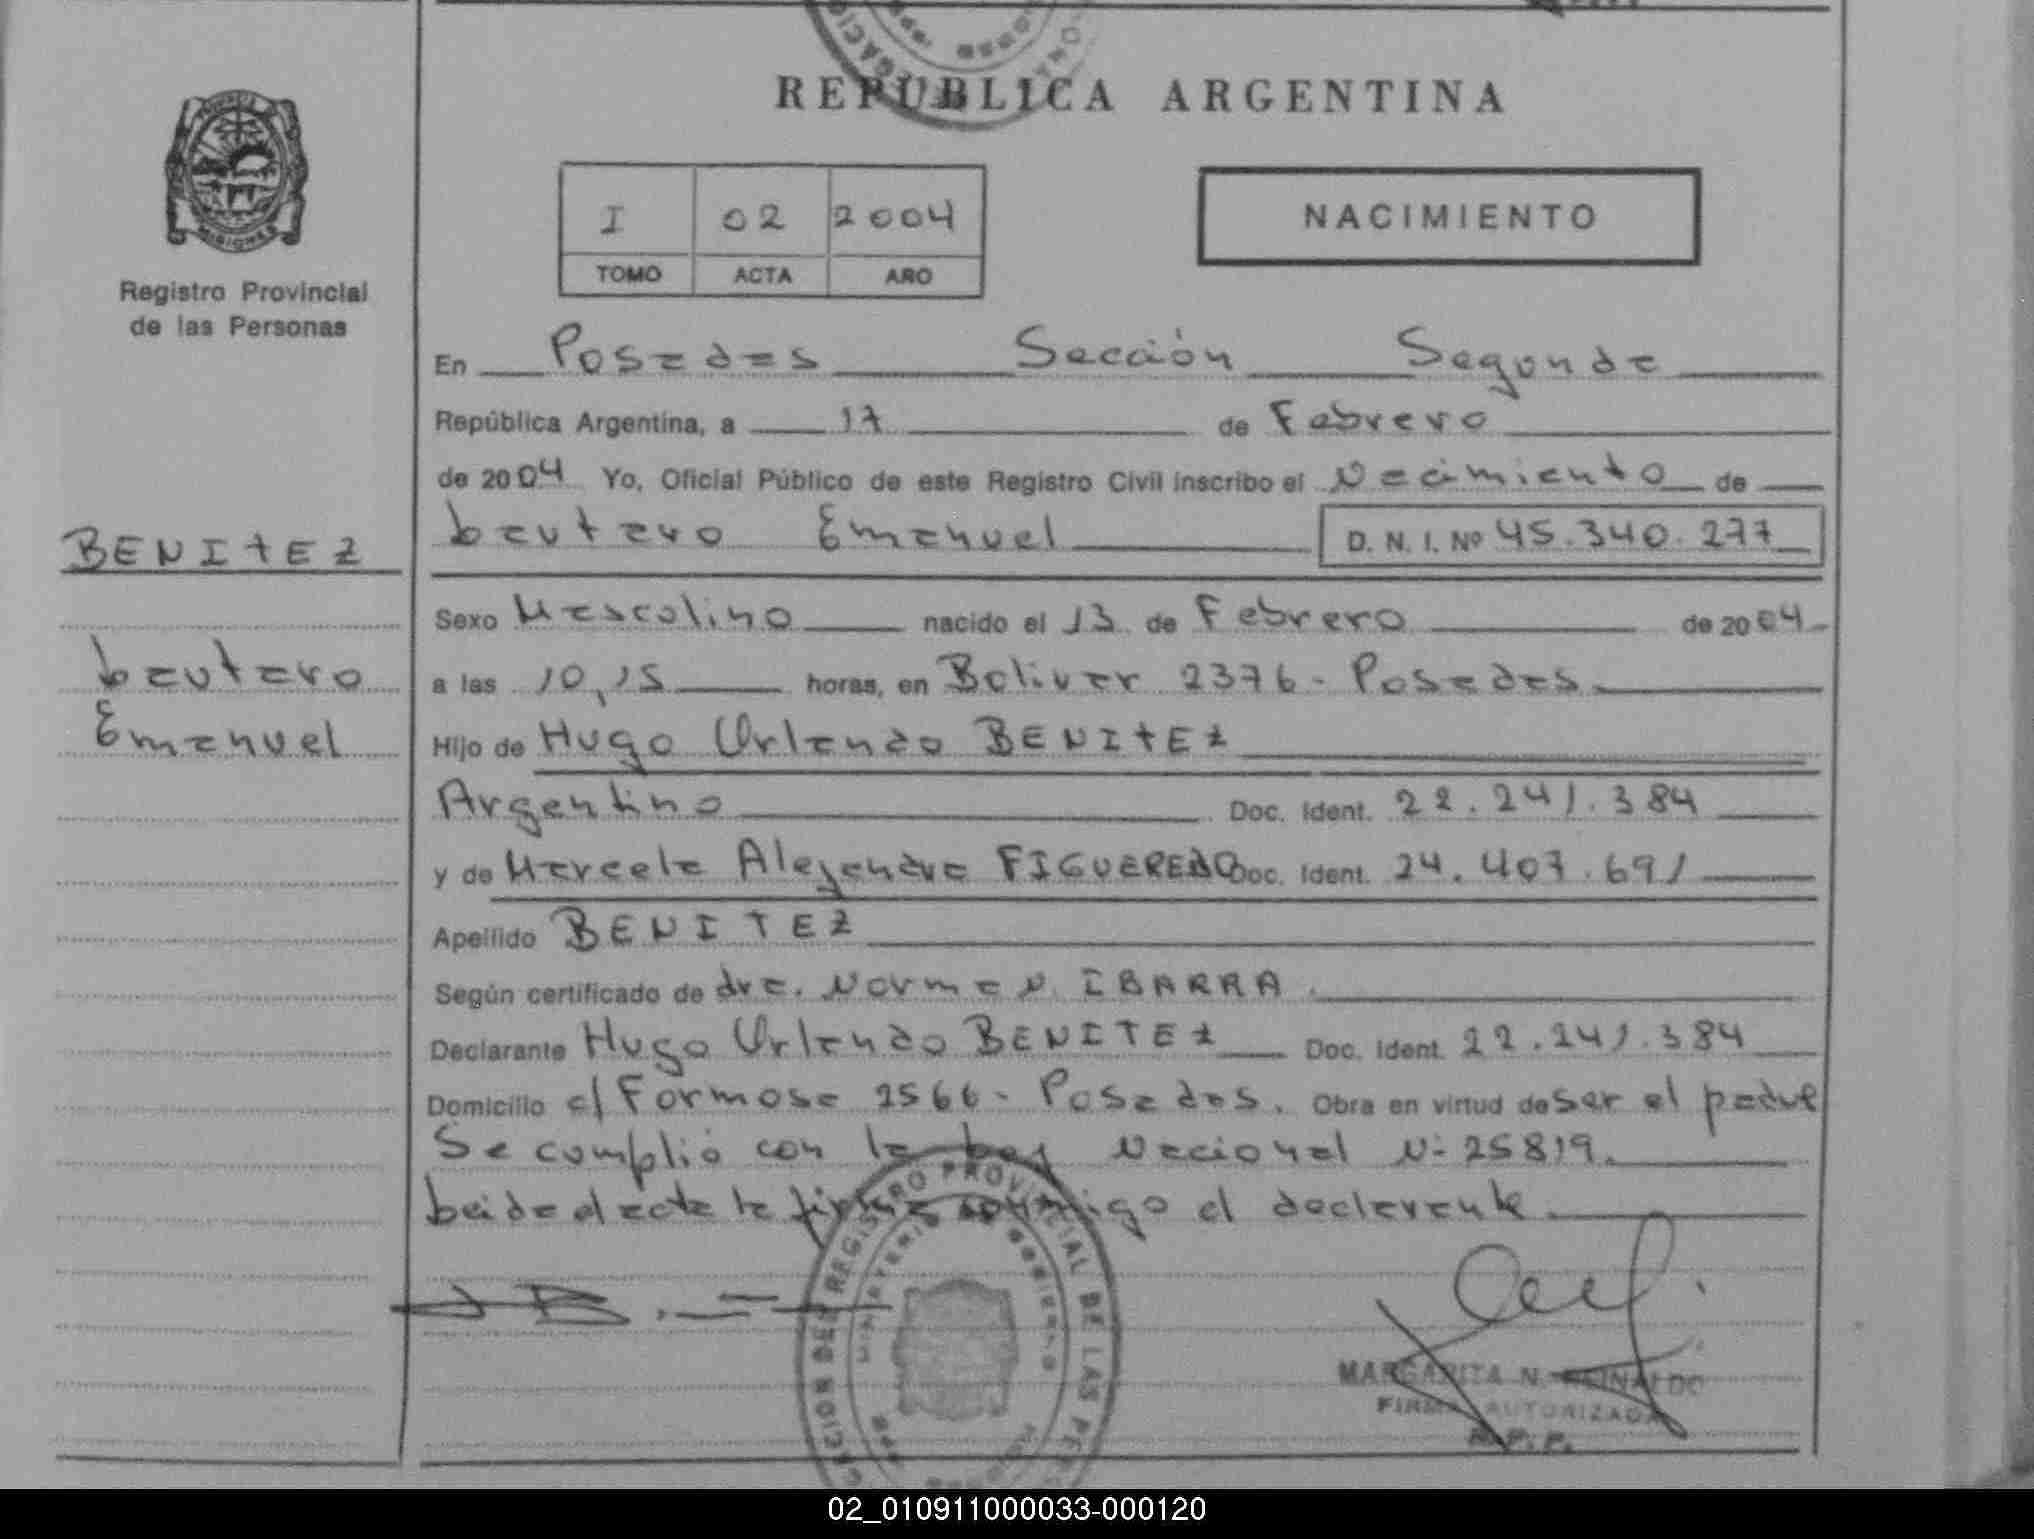 REPUBLICA ARGENTINA
MISIONES
Registro Provincial
de las Personas
I 02 2004
TOMO ACTA AÑO
NACIMIENTO
En Posadas Sección Segunda
República Argentina, a 17 de Febrero
de 2004 Yo, Oficial Público de este Registro Civil inscribo el Nacimiento de
Lautaro Emanuel D. N. I. Nº 45.340.277
BENITEZ
Lautaro
Emanuel
Sexo Masculino nacido el 13 de Febrero de 2004
a las 10,15 horas, en Bolivar 2376 - Posadas
Hijo de Hugo Orlando BENITEZ
Argentino Doc. Ident. 22.241.384
y de Marcela Alejandra FIGUEREDO Doc. Ident. 24.407.691
Apellido BENITEZ
Según certificado de dra. Norma N. IBARRA.
Declarante Hugo Orlando BENITEZ Doc. Ident. 22.241.384
Domicilio c/ Formosa 2566 - Posadas. Obra en virtud de ser el padre
Se cumplió con la Ley Nacional Nº 25819.
Leida el acta la firma conmigo el declarante
REGISTRO PROVINCIAL DE LAS
MINISTERIO GOBIERNO
MARGARITA N. REINALDO
FIRMA AUTORIZADA
R.P.P.
02_010911000033-000120